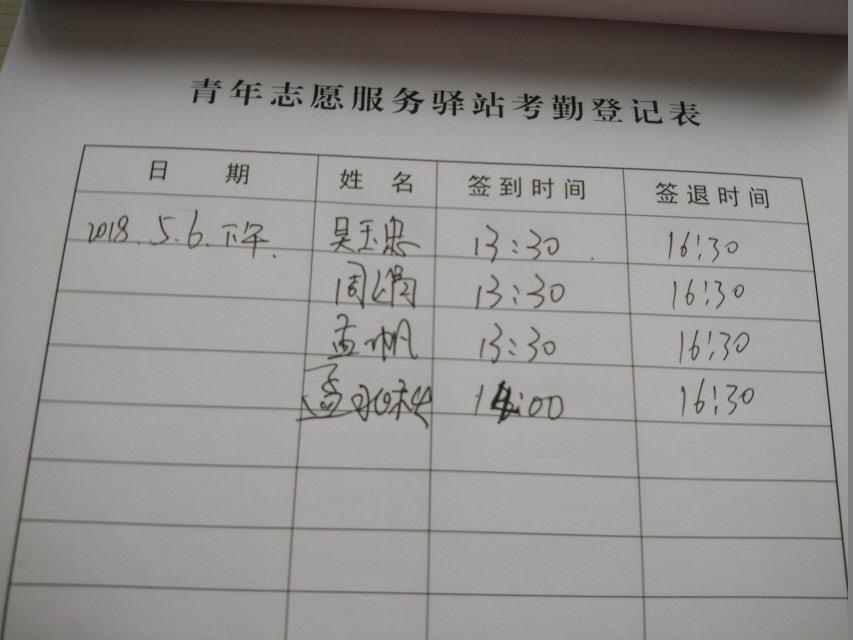 青年志愿服务驿站考勤登记表
日 期 姓 名 签到时间 签退时间
2018.5.6.下午. 吴玉忠 13:30 16:30
周鹃 13:30 16:30
孟帆 13:30 16:30
14:00 16:30